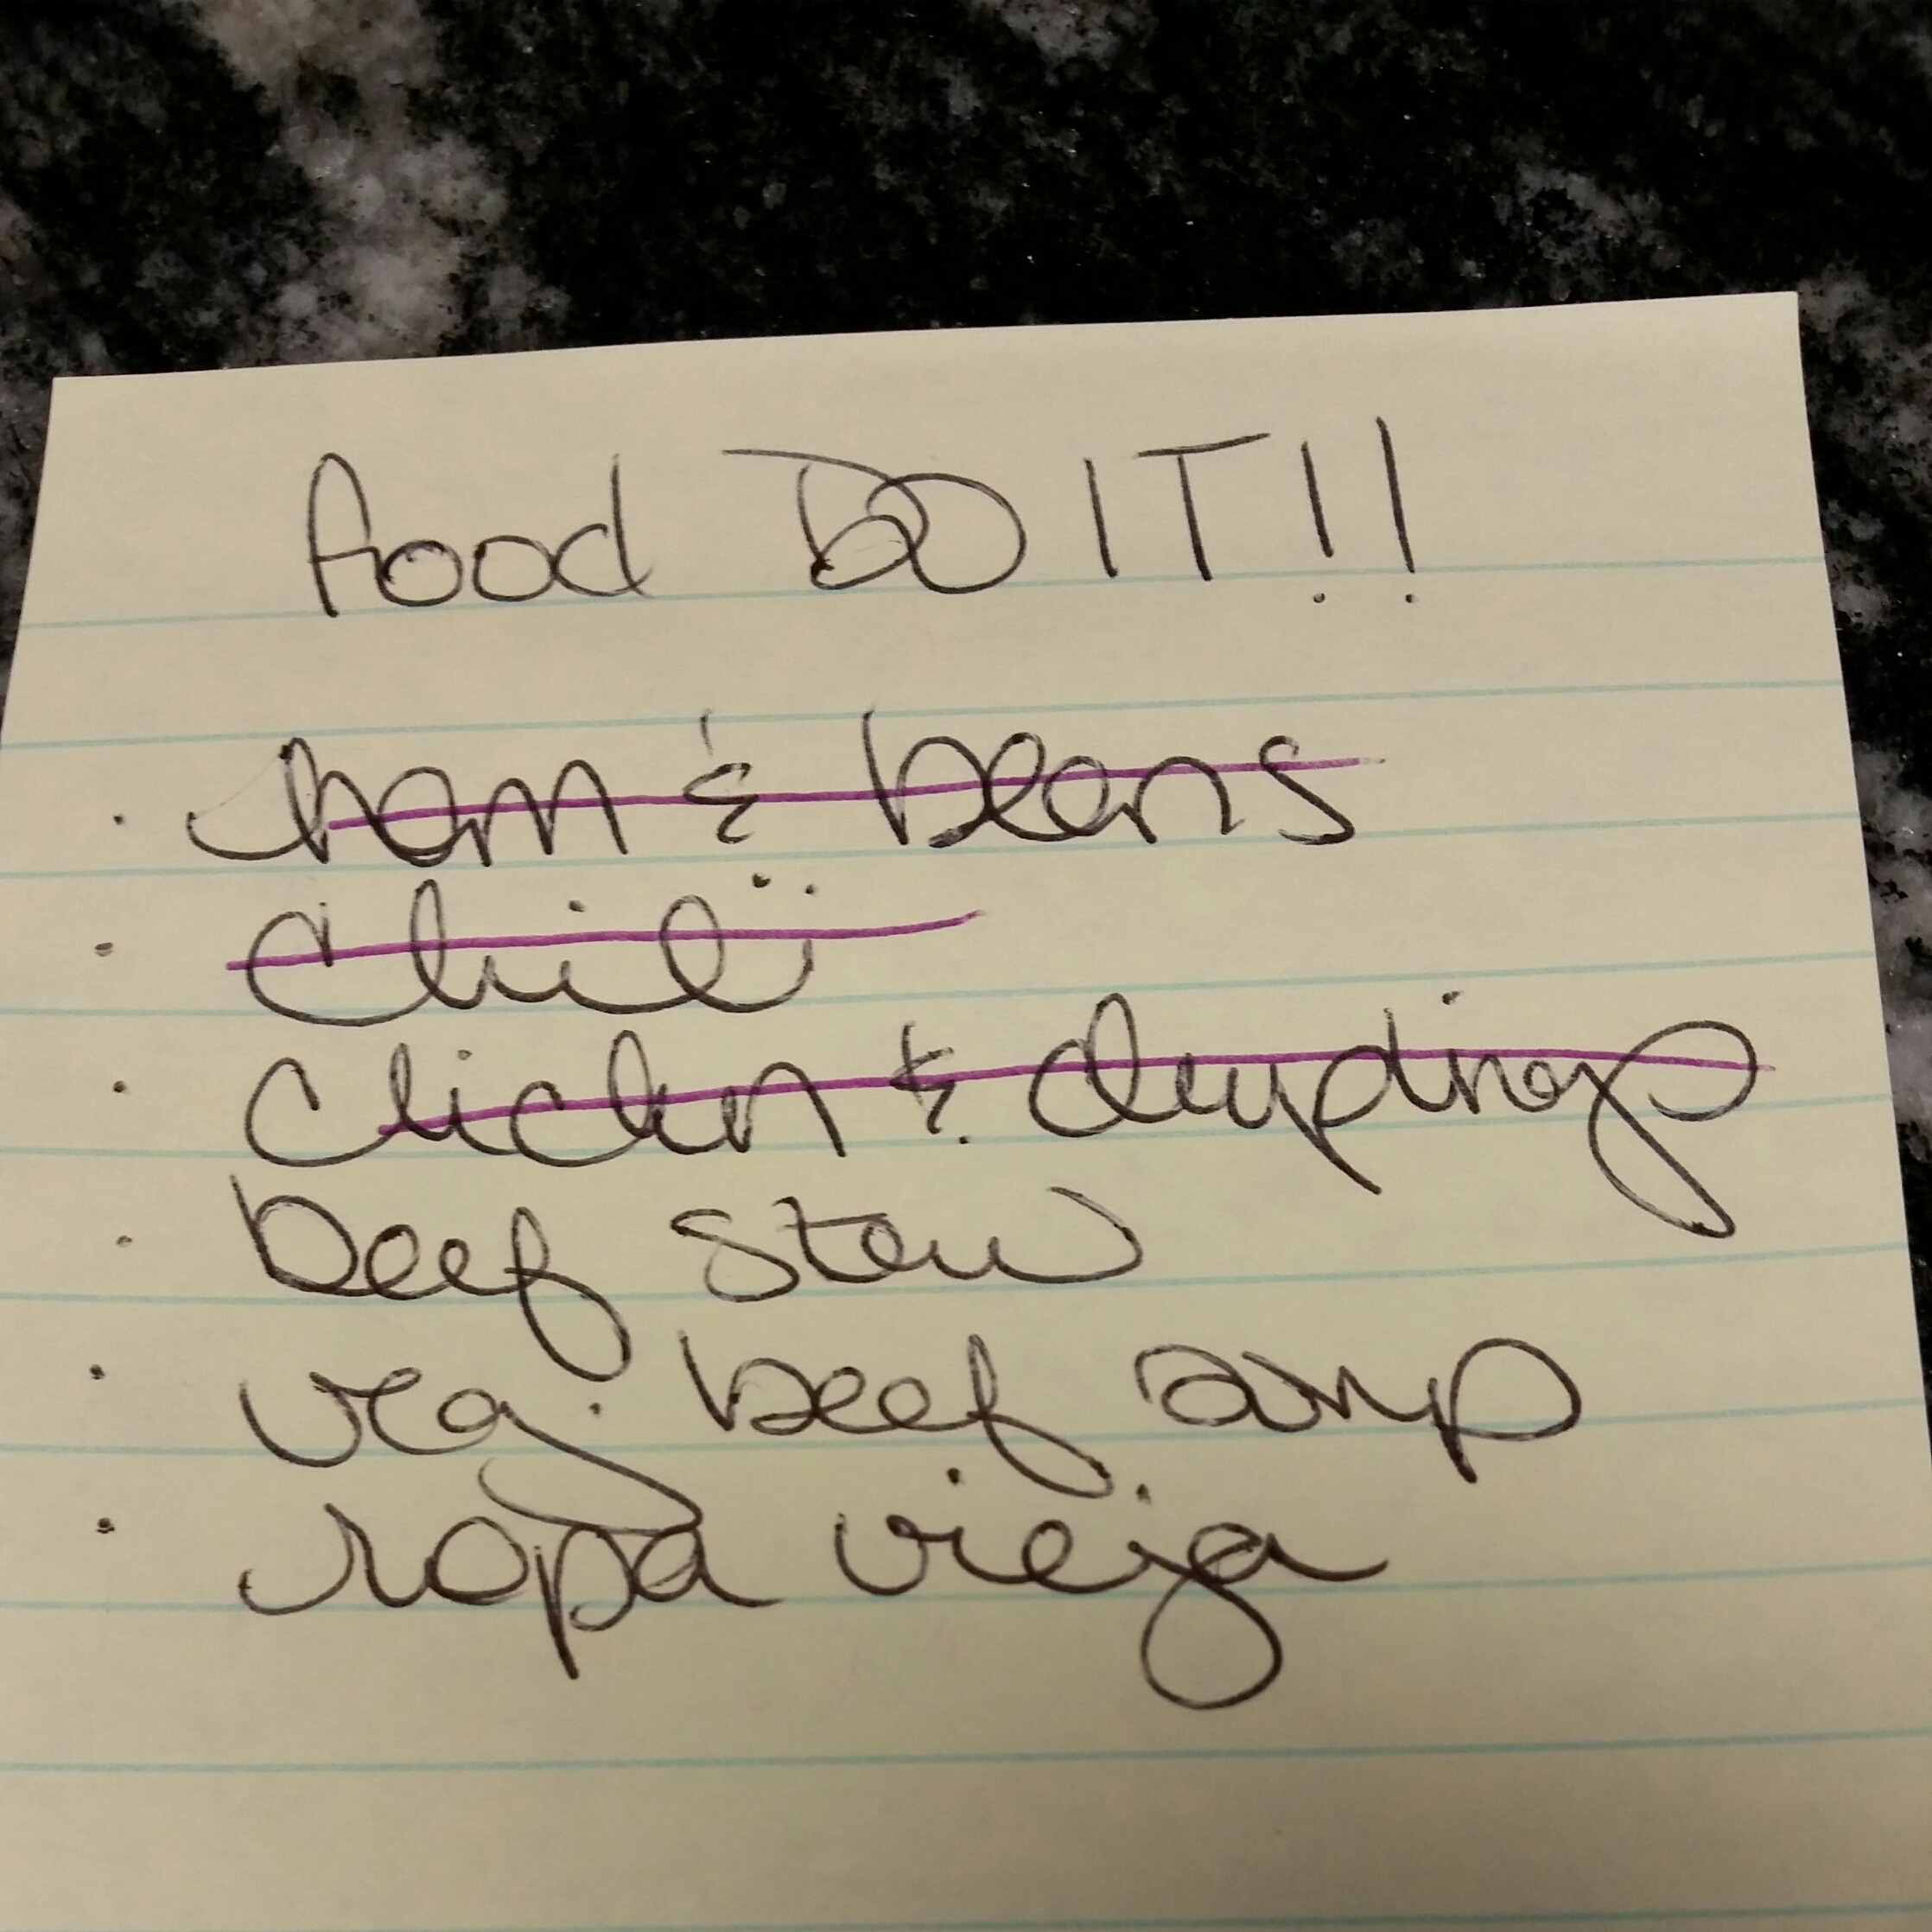 food DO IT!!
· ham & beans
· Chili
· Chicken & dumplings
· beef stew
· veg. beef soup
· ropa vieja